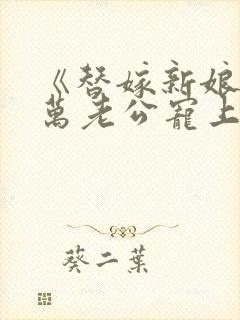 《替嫁新娘
萬老公寵上
葵二葉